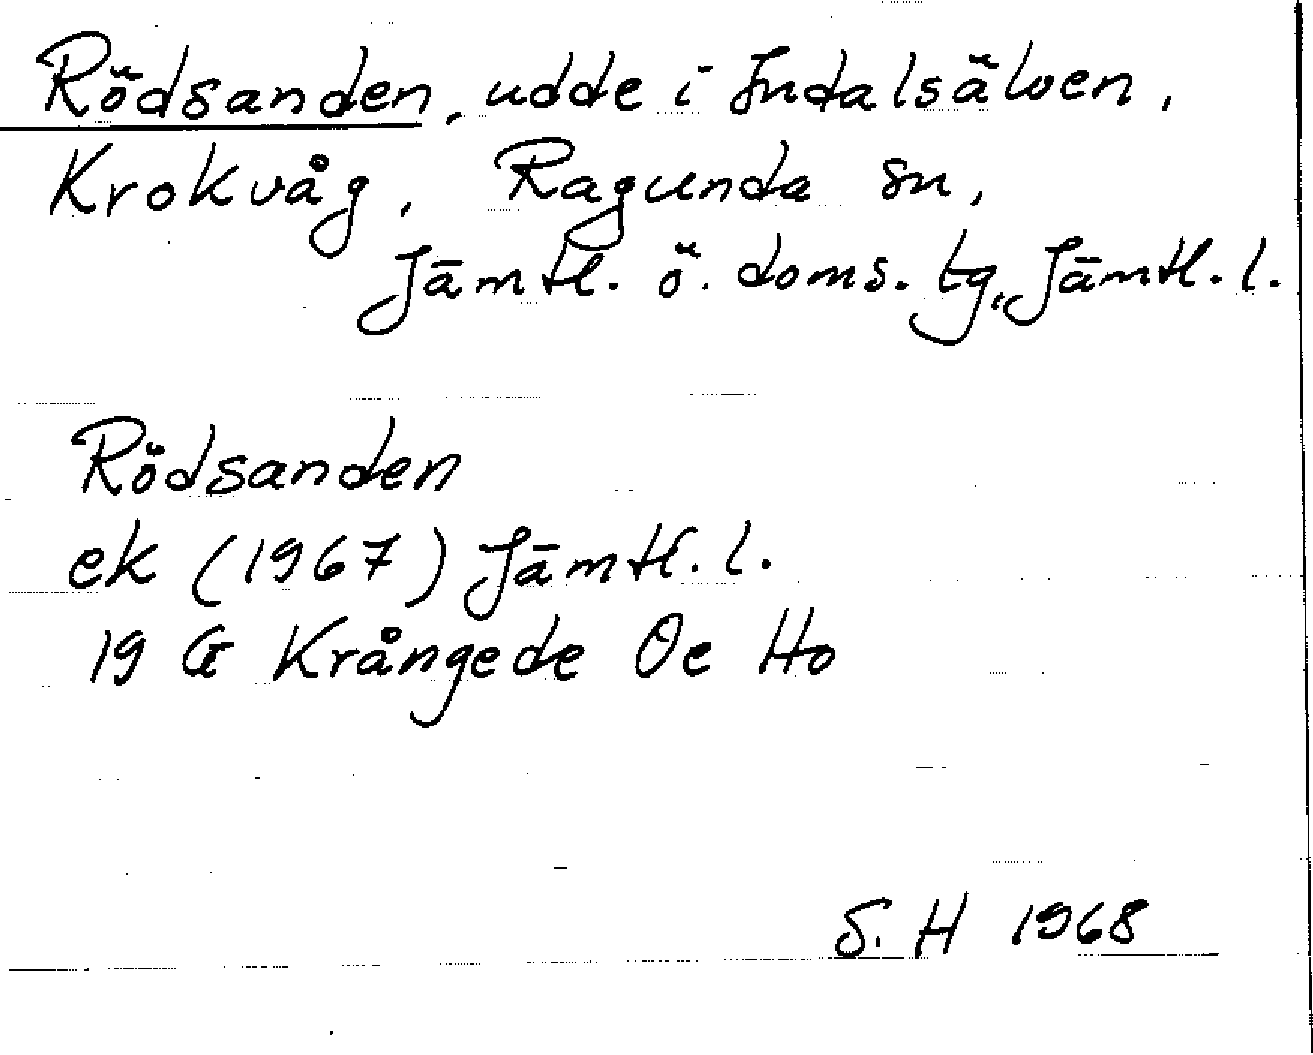 Rödsanden, udde i Indalsälven,
Krokvåg, Ragunda sn,
Jämtl. ö. doms. tg, Jämtl. l.
Rödsanden
ek (1967) Jämtl. l.
19 G Krångede Öe Ho
S. H 1968